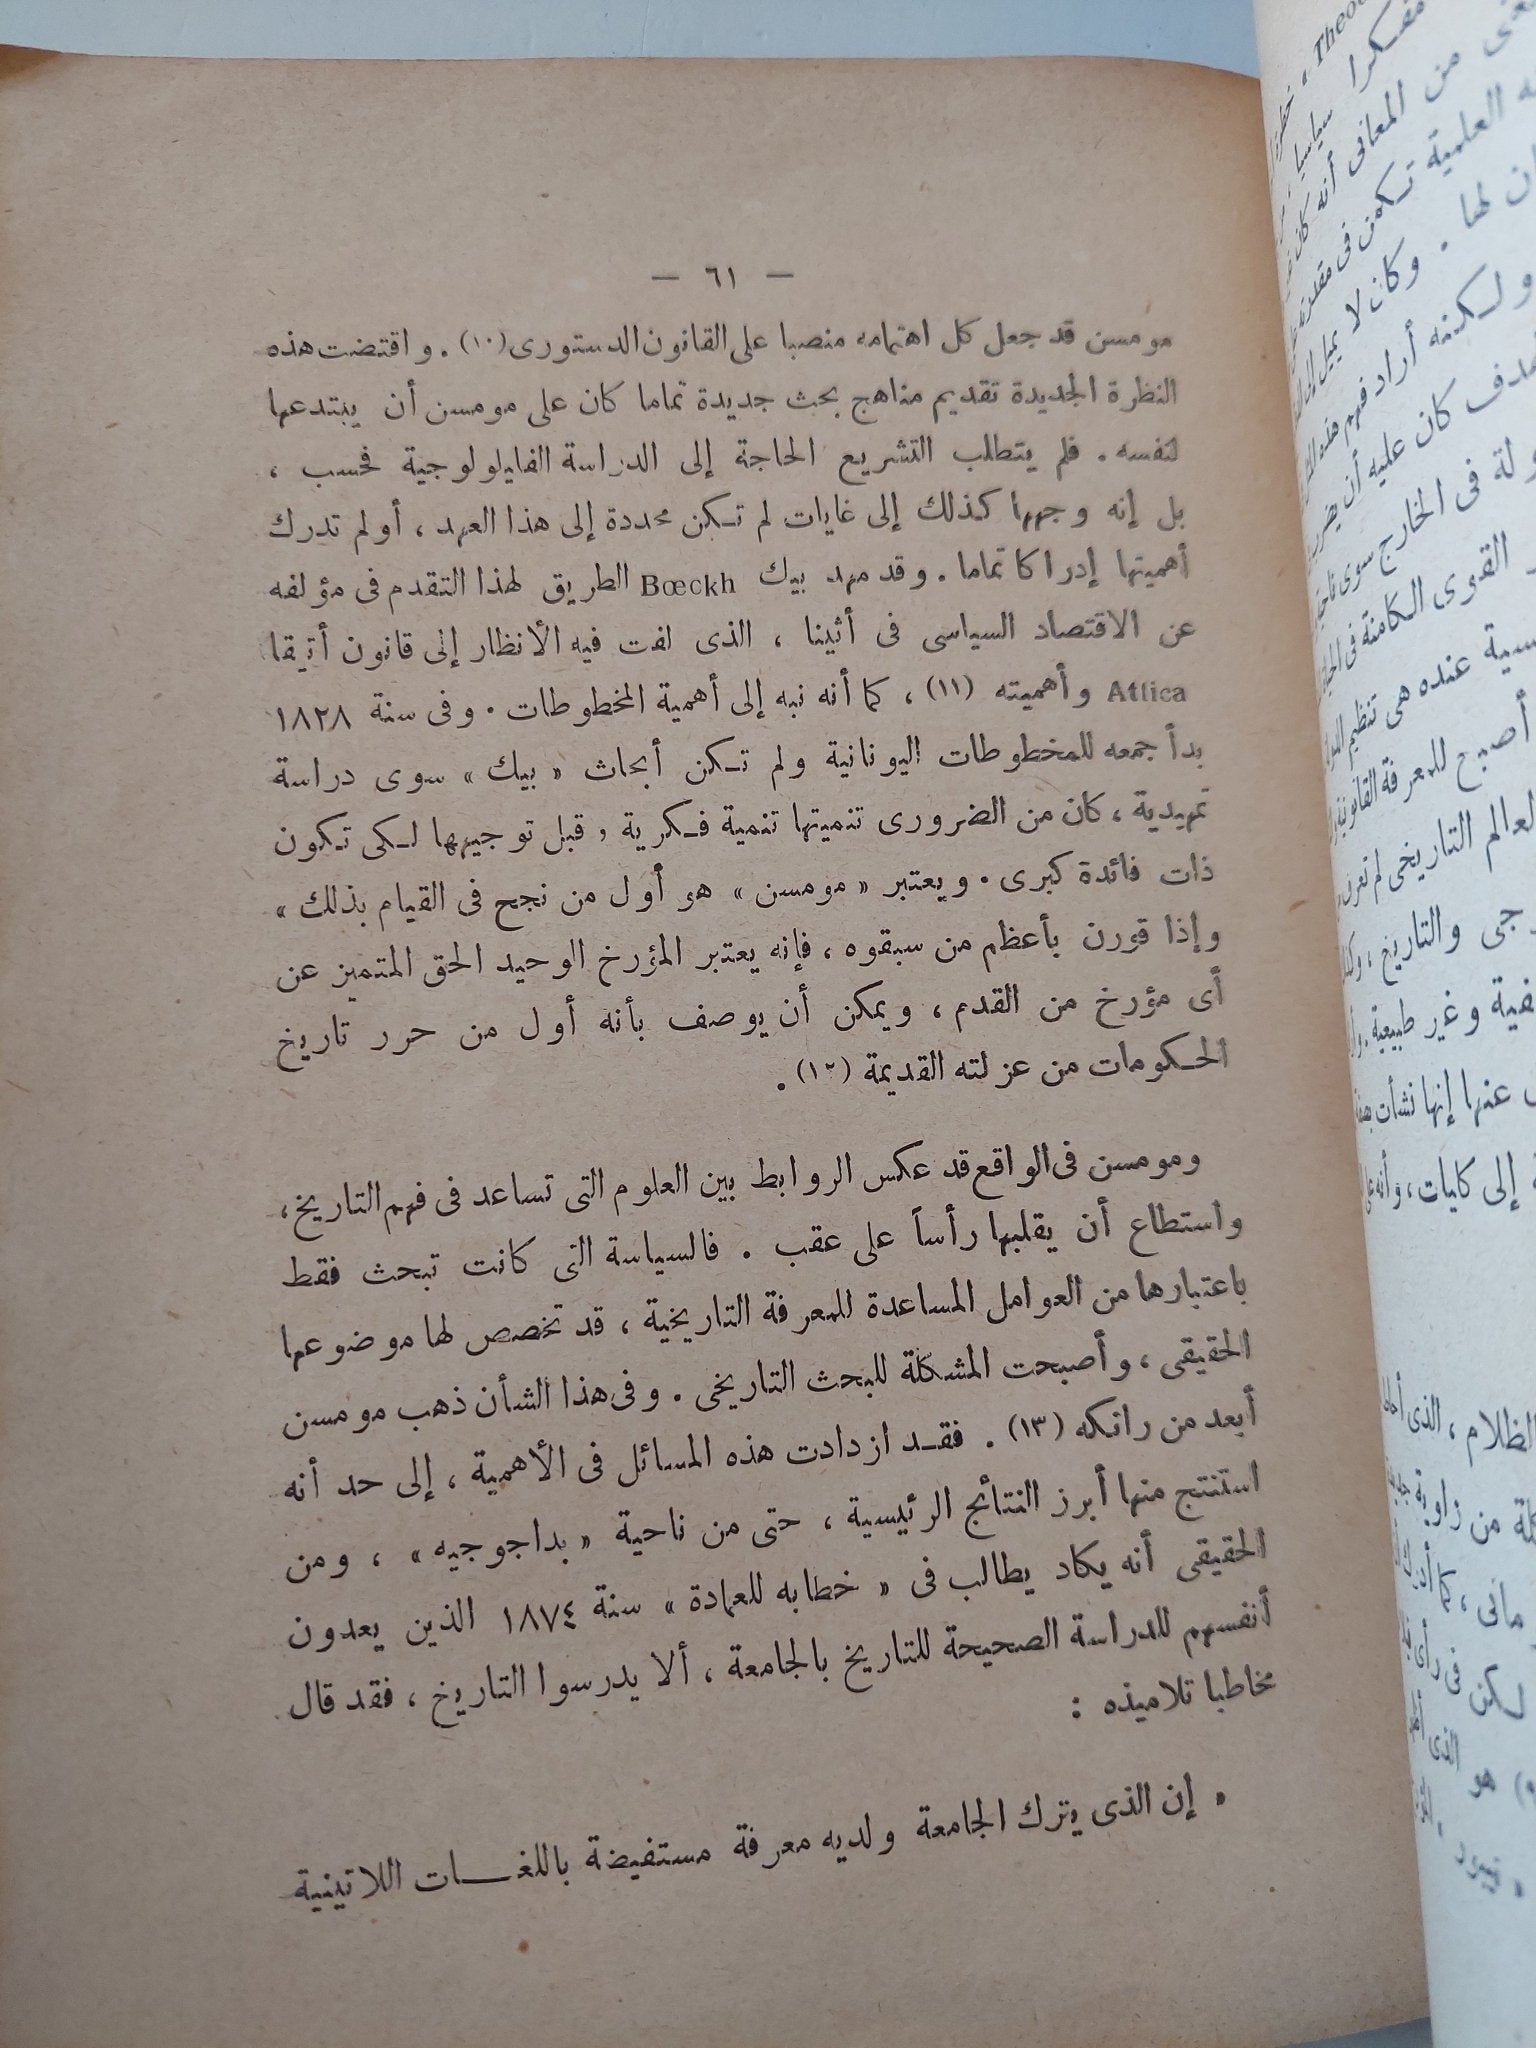 — ٦١ —
مومسن قد جعل كل اهتمامه منصبا على القانون الدستورى (١٠) . واقتضت هذه
النظرة الجديدة تقديم مناهج بحث جديدة تماما كان على مومسن أن يبتدعها
لنفسه . فلم يتطلب التشريع الحاجة إلى الدراسة الفايلولوجية فحسب ،
بل إنه وجهها كذلك إلى غايات لم تكن محددة إلى هذا العهد ، أو لم تدرك
أهميتها إدراكا تماما . وقد مهد بيك Bœckh الطريق لهذا التقدم فى مؤلفه
عن الاقتصاد السياسى فى أثينا ، الذى لفت فيه الأنظار إلى قانون أتيقا
Attica وأهميته (١١) ، كما أنه نبه إلى أهمية المخطوطات . وفى سنة ١٨٢٨
بدأ جمعه للمخطوطات اليونانية ولم تكن أبحاث « بيك » سوى دراسة
تمهيدية ، كان من الضرورى تنميتها تنمية فكرية ، قبل توجيهها لكى تكون
ذات فائدة كبرى . ويعتبر « مومسن » هو أول من نجح فى القيام بذلك »
وإذا قورن بأعظم من سبقوه ، فإنه يعتبر المؤرخ الوحيد الحق المتميز عن
أى مؤرخ من القدم ، ويمكن أن يوصف بأنه أول من حرر تاريخ
الحكومات من عزلته القديمة (١٢) .
ومومسن فى الواقع قد عكس الروابط بين العلوم التى تساعد فى فهم التاريخ ،
واستطاع أن يقلبها رأساً على عقب . فالسياسة التى كانت تبحث فقط
باعتبارها من العوامل المساعدة للمعرفة التاريخية ، قد تخصص لها موضوعها
الحقيقى ، وأصبحت المشكلة للبحث التاريخى . وفى هذا الشأن ذهب مومسن
أبعد من رانكه (١٣) . فقد ازدادت هذه المسائل فى الأهمية ، إلى حد أنه
استنتج منها أبرز النتائج الرئيسية ، حتى من ناحية « بداجوجيه » ، ومن
الحقيقى أنه يكاد يطالب فى « خطابه للعمادة » سنة ١٨٧٤ الذين يعدون
أنفسهم للدراسة الصحيحة للتاريخ بالجامعة ، ألا يدرسوا التاريخ ، فقد قال
مخاطبا تلاميذه :
« إن الذى يترك الجامعة ولديه معرفة مستفيضة باللغات اللاتينية